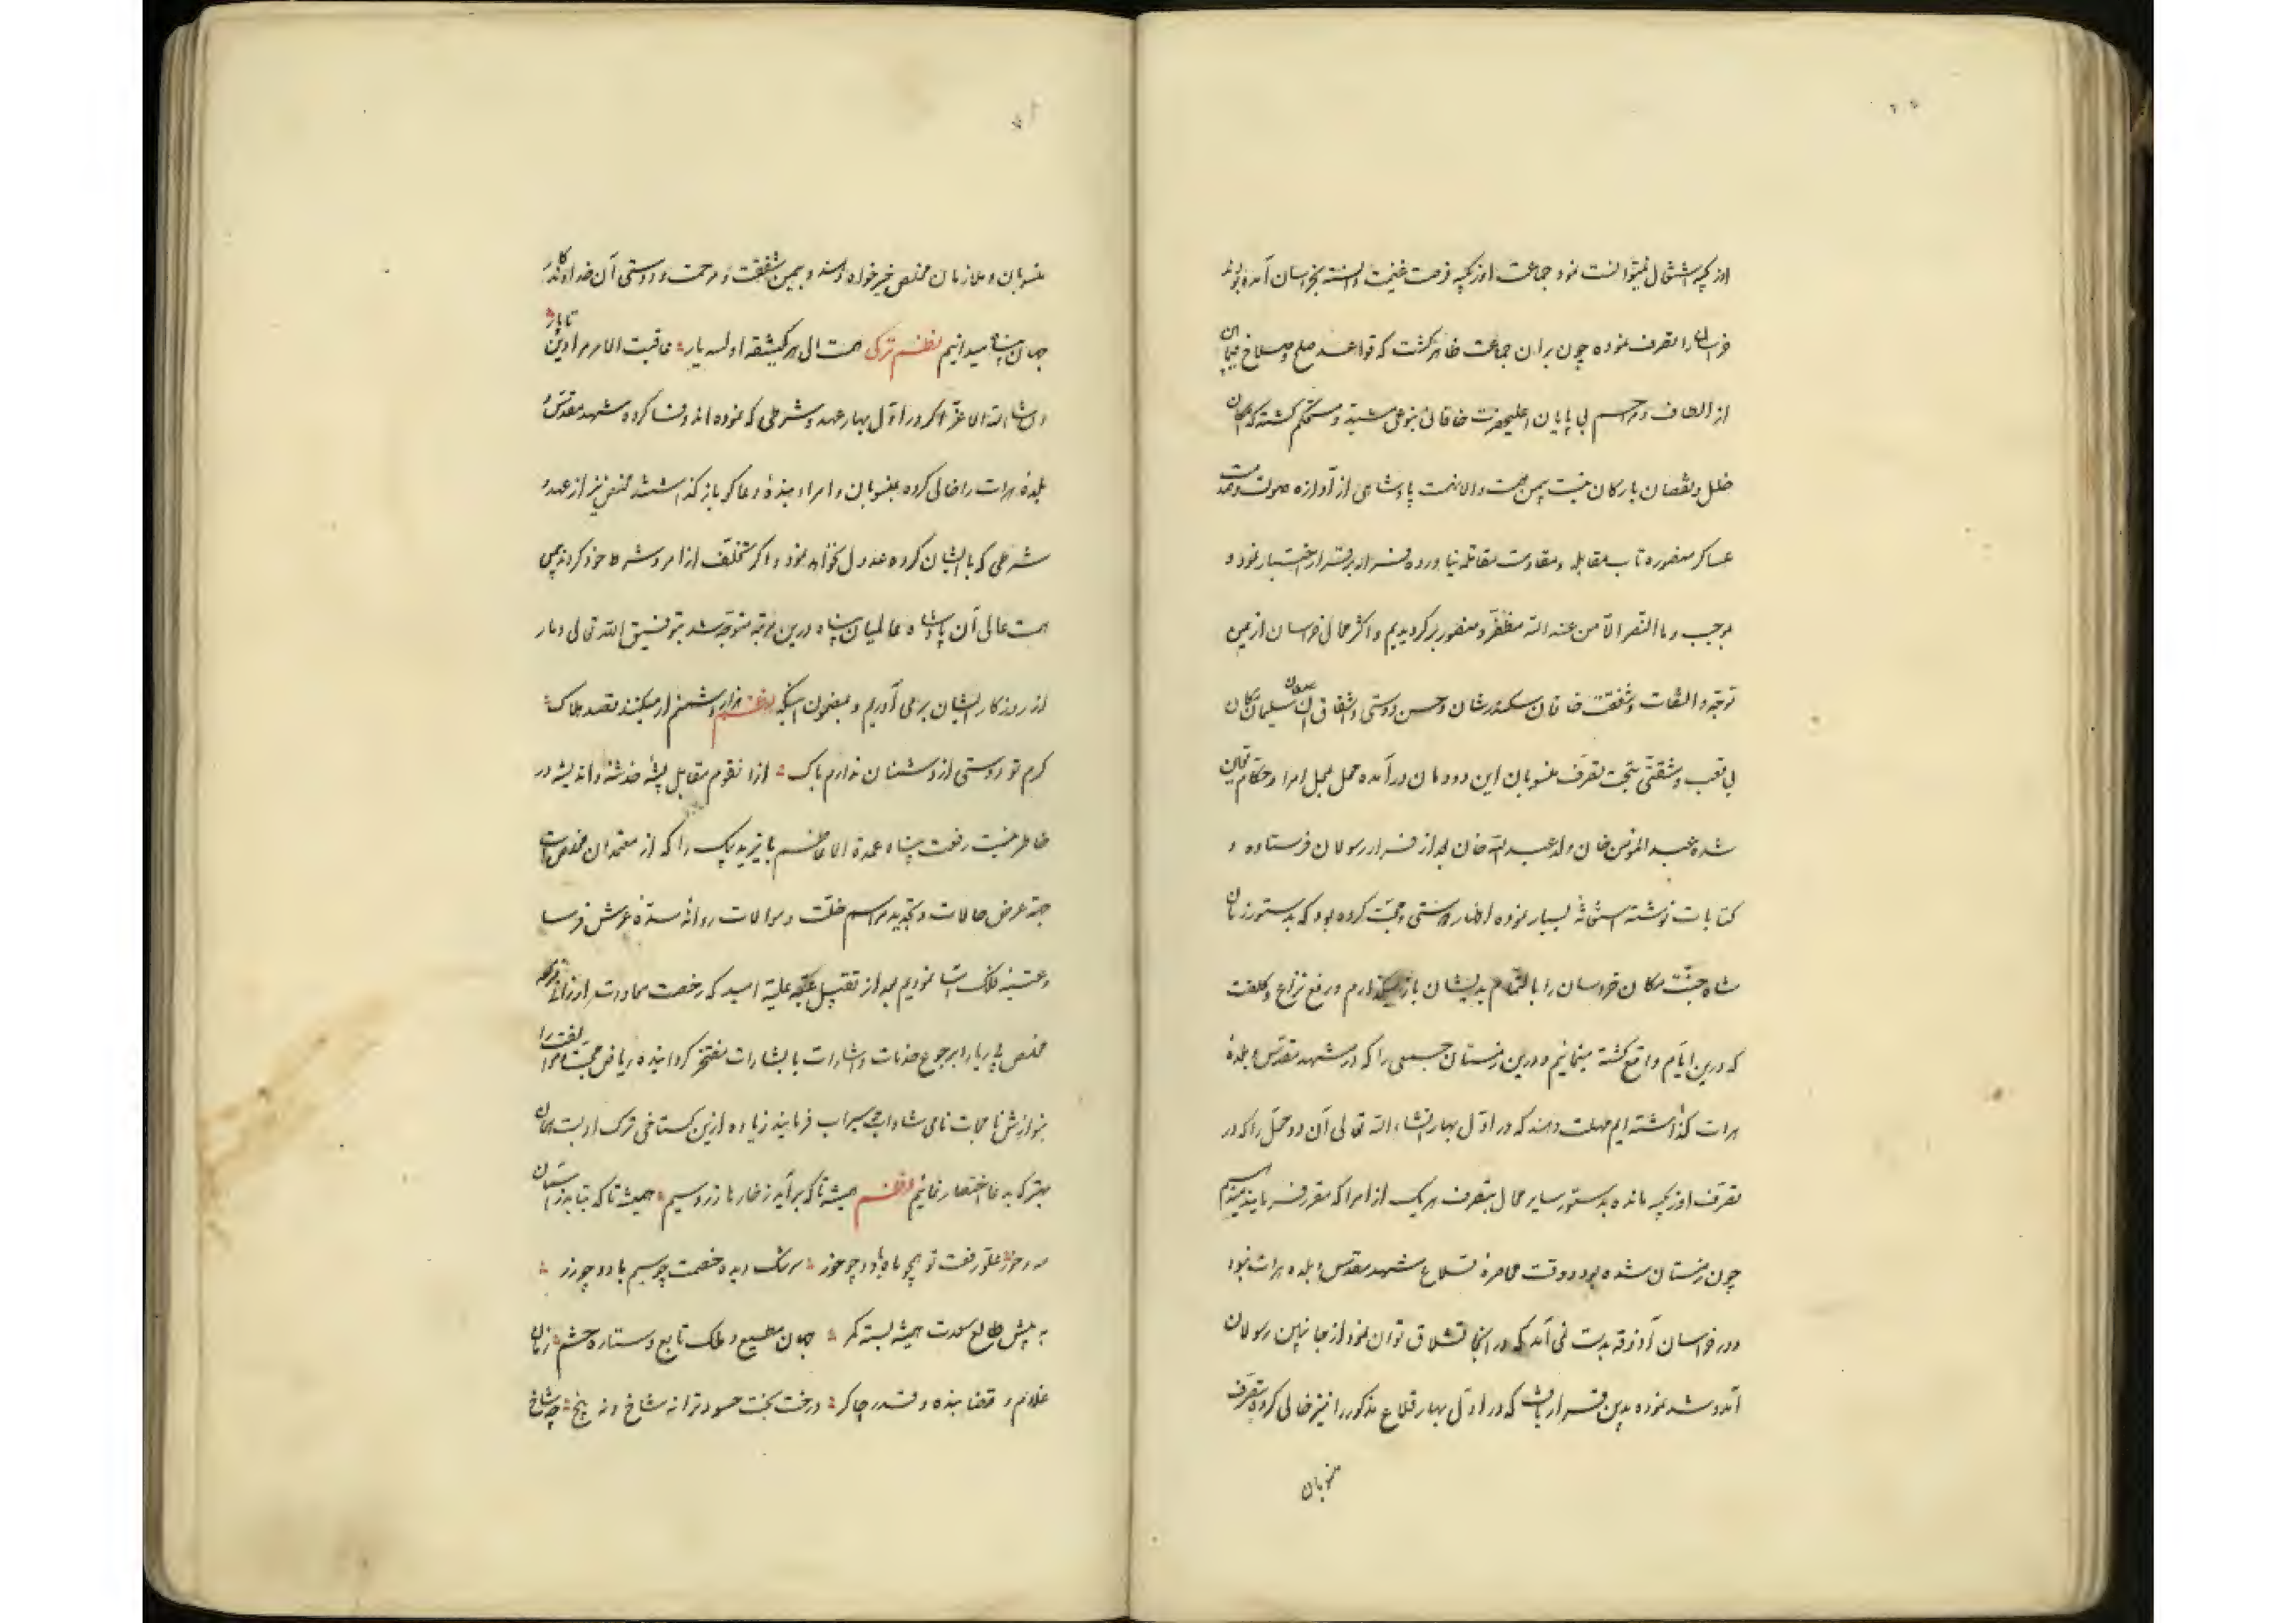 اوزبکیه اشتغال نمیتوانست نمود جماعت اوزبکیه فرصت غنیمت دانسته بخراسان آمده بودند
خراسان را تصرف نموده چون بران جماعت ظاهر گشت که قواعد صلح و صلاح فیمابین
از الطاف و مراحم بی پایان اعلیحضرت خاقانی بنوعی مشید و مستحکم گشته که امکان
خلل و نقصان بارکان نیست بیمن همت والانهمت پادشاهی از آوازه صولت و صدمت
عساکر منصوره تاب مقابله و مقاومت مقاتله نیاورده فرار بر قرار اختیار نمود و
بموجب و ما النصر الا من عند الله مظفر و منصور برگردیدیم و اکثر محال خراسان از یمن
توجه و التفات و شفقت خاقان سکندرشان و حسن دوستی و اتفاق آن سلیمان مکان
بی تعب و مشقتی بتحت تصرف منسوبان این دودمان درآمده محل بمحل امرا و حکام تعیین
شده عبدالمؤمن خان ولد عبدالله خان بعد از فرار رسولان فرستاده و
کتابات نوشته استغاثه بسیار نموده اظهار دوستی و محبت کرده بود که بدستور زمان
شاه جنت مکان خراسان را بالتمام بدیشان باز میگذارم و رفع نزاع و کلفت
که درین ایام واقع گشته مینمائیم و درین زمستان جمعی را که در مشهد مقدس و بلده
هرات گذاشته ایم مهلت دهند که در اول بهار انشاء الله تعالی آن دو محل را که در
تصرف اوزبکیه مانده بدستور سایر محال بتصرف هر یک از امرا که مقرر فرمایند میدهیم
چون زمستان شده بود و وقت محاصره قلاع مشهد مقدس و بلده هرات نبود
و در خراسان آذوقه بدست نمی آمد که در آنجا قشلاق توان نمود از جانبین رسولان
آمد و شد نموده بدین قرار یافت که در اول بهار قلاع مذکور را نیز خالی کرده بتصرف
منسوبان
منسوبان و ملازمان مخلص خیرخواه دهند و بیمن شفقت و مرحمت و دوستی آن خداوندکار
جهان پناه میدانیم نظم ترکی همت ال هر کیشقه اولسه یار عاقبت الامر مرادین تاپار
و انشاء الله الاعز اگر در اول بهار عهد و شرطی که نموده اند وفا کرده مشهد مقدس و
بلده هرات را خالی کرده بمنسوبان و امراء بنده دعاگو باز گذاشتند مخلص نیز از عهد و
شرطی که بایشان کرده عدول نخواهد نمود و اگر تخلف از امر و شرط خود کردند بیمن
همت عالی آن پادشاه عالمیان پناه درین مرتبه متوجه شده بتوفیق الله تعالی دمار
از روزگار ایشان برمی آوریم و بمضمون اینکه نظم هزار دشمنم ار میکنند قصد هلاک
گرم تو دوستی از دشمنان ندارم باک ازانقوم مقابل پشه خدشه و اندیشه در
خاطر نیست رفعت پناه عمدة الاعاظم بایزید بیک را که از معتمدان مخلص است
جهة عرض حالات و تجدید مراسم خلت و موالات روانه سده عرش فرسا
و عتبه فلک اسا نمودیم بعد از تقبیل عتبه علیه امید که رخصت معاودت ارزانی فرموده
مخلص بی ریا را برجوع خدمات و اشارات با بشارات مفتخر گردانیده ریاض محبت و موالفت را
بنوازش نامجات نامی شاداب و سیراب فرمایند زیاده ازین گستاخی ترک ادبست همان
بهتر که بدعا اختصار نمائیم نظم همیشه تا که برآید ز خار ها زر و سیم همیشه تا که بتابد ز آسمان
مه و خور علو رفعت تو همچو ماه باد و چو خور سرشک دیده خصمت چو سیم باد و چو زر
به پیش طالع سعدت همیشه بسته کمر جهان مطیع و فلک تابع و ستاره حشم زمان
غلام و قضا بنده و قدر چاکر درخت بخت حسود ترا نه شاخ و نه بیخ چه شاخ